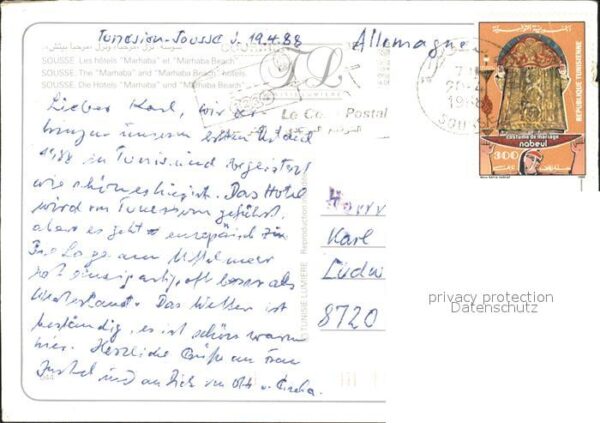 Tunesien-Sousse d. 19.4.88
Allemagne
سوسة - نزل «مرحبا» و «مرحبا بيتش»
SOUSSE. Les hôtels "Marhaba" et "Marhaba Beach"
SOUSSE. The "Marhaba" and "Marhaba Beach" hotels
SOUSSE. Die Hotels "Marhaba" und "Marhaba Beach"
Le Code Postal
SOUSSE
REPUBLIQUE TUNISIENNE
costume de mariage
nabeul
300
Lieber Karl, wir
bringen unseren ersten Urlaub
1988 in Tunis. und begeistert
wie schön es hier ist. Das Hotel
wird von Tunesiern geführt,
aber es geht europäisch zu.
Die Lage am Mittelmeer
ist einzigartig, oft besser als
Das Wetter ist
beständig, es ist schön warm
hier. Herzliche Grüße an Frau
und an Dich von Otto u.
TUNISIE LUMIERE
Reproduction
Herrn
Karl
Ludwi
8720
privacy protection
Datenschutz